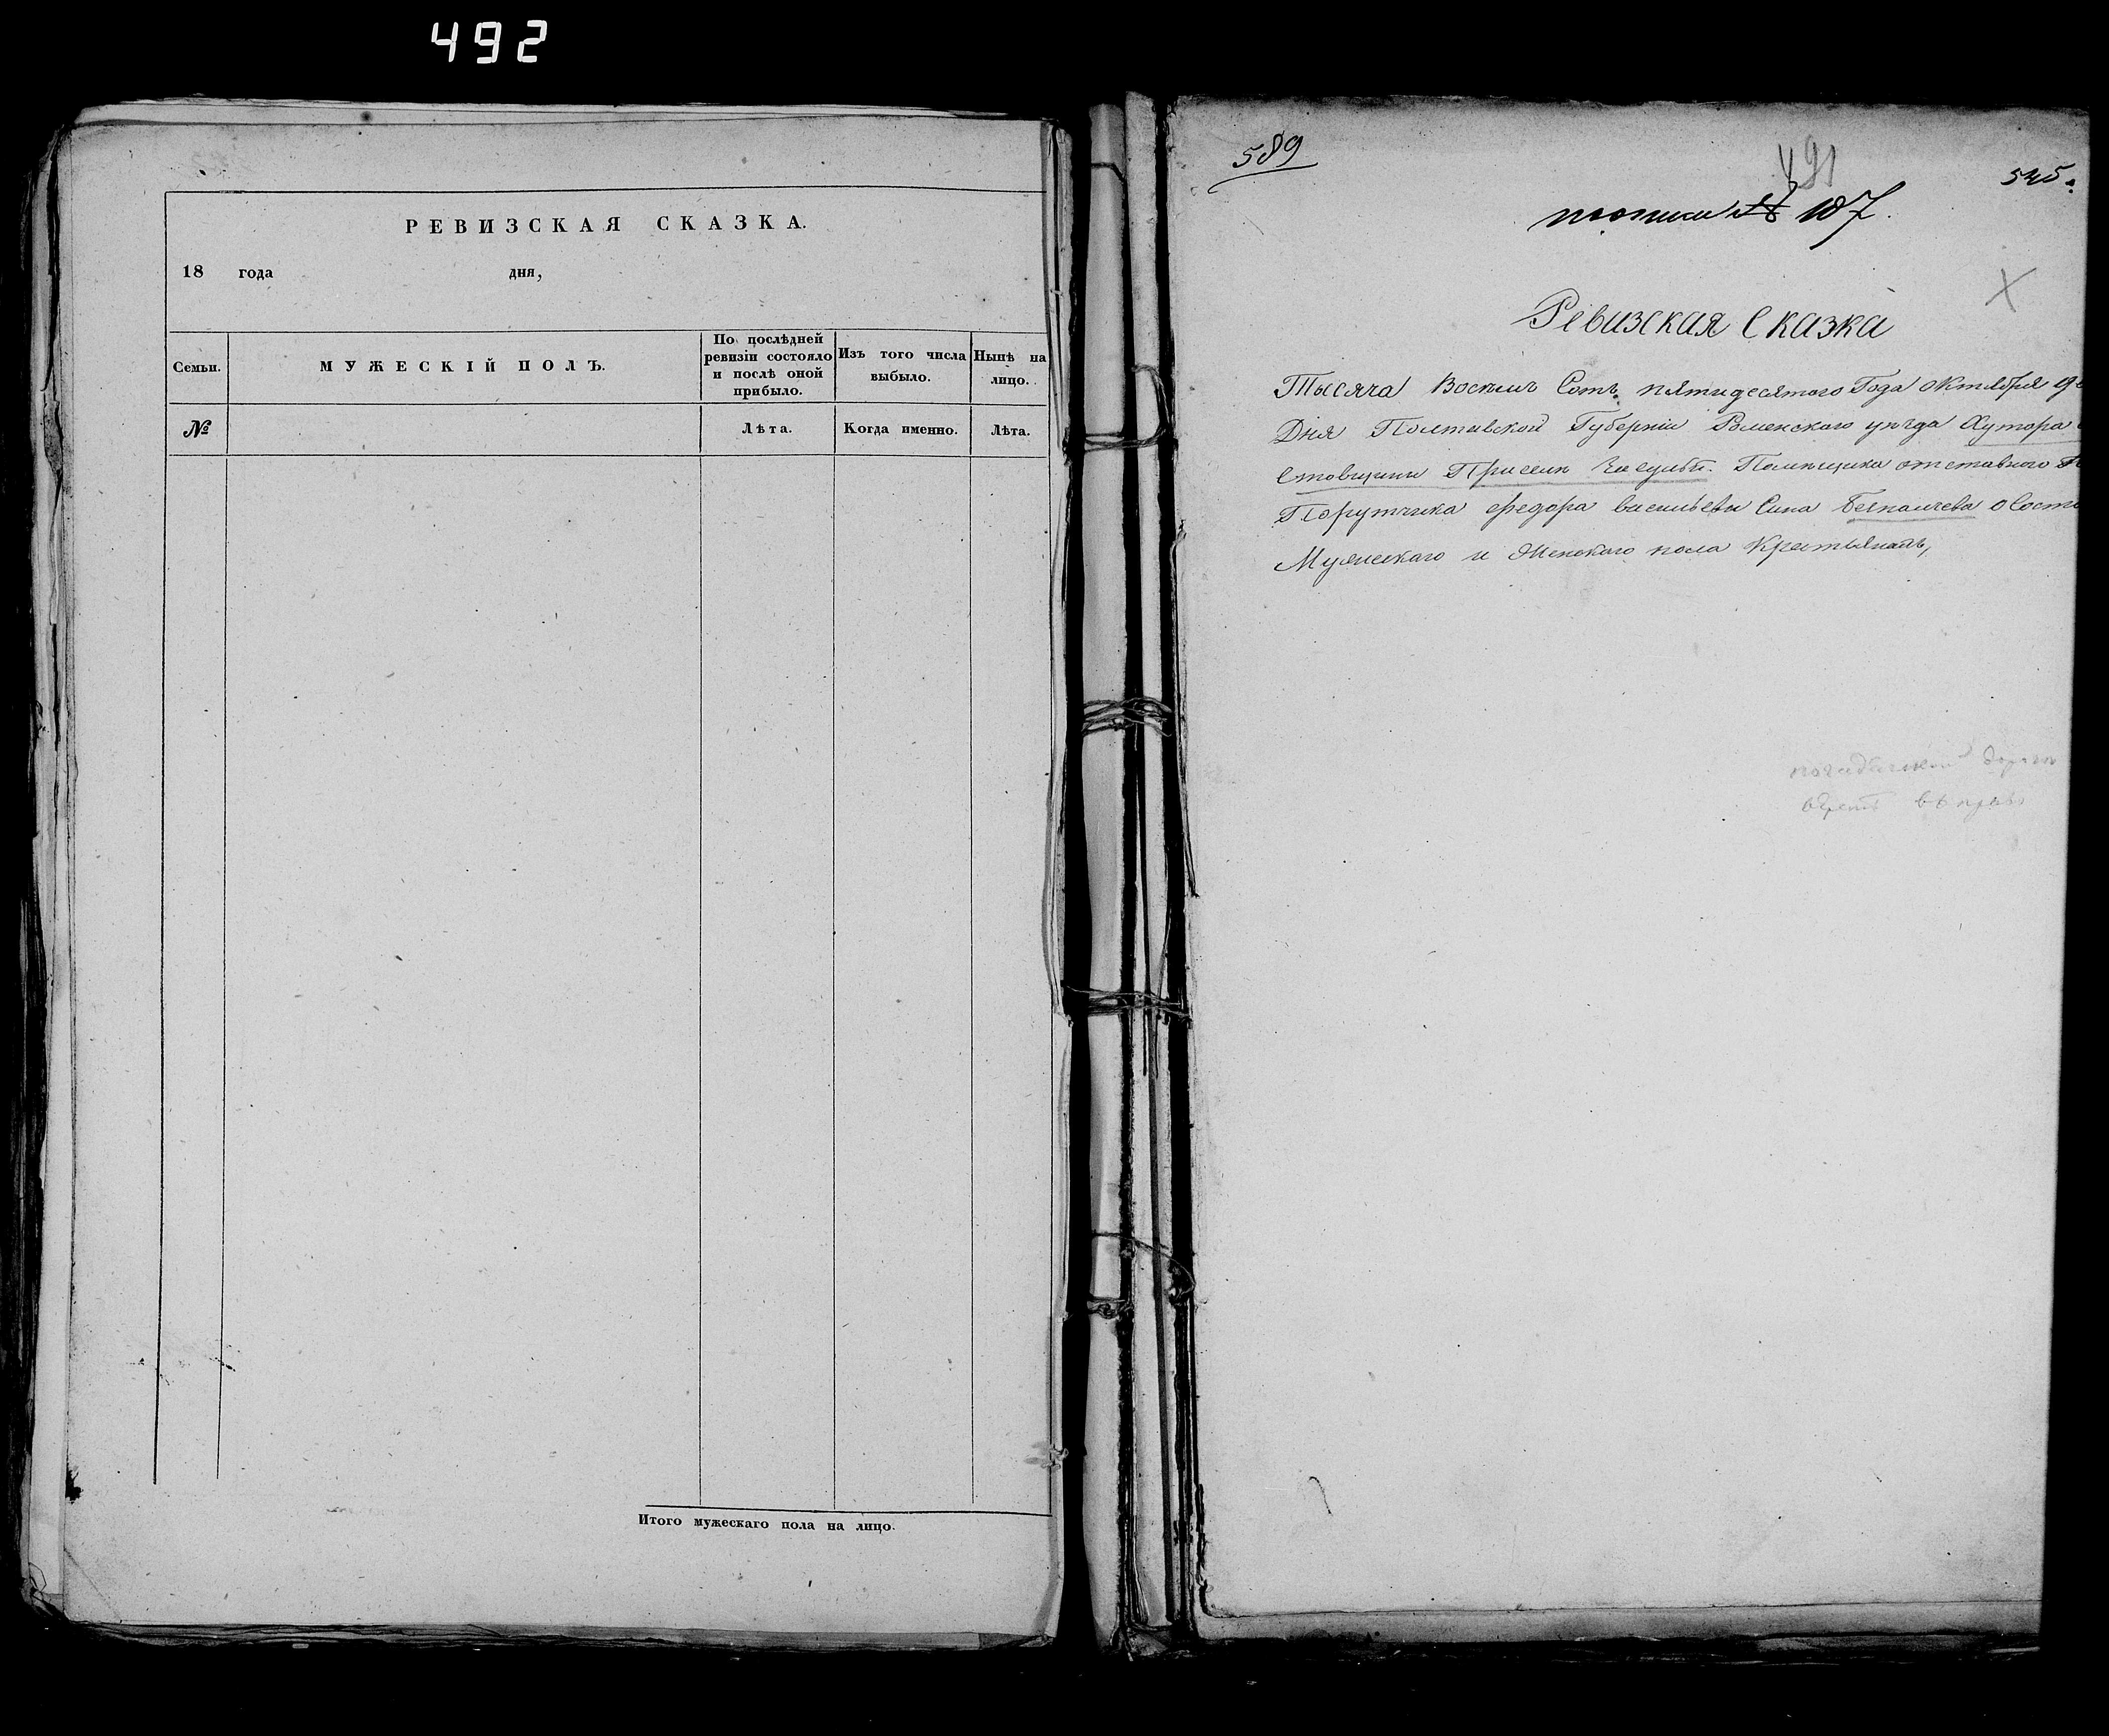 492
РЕВИЗСКАЯ СКАЗКА.
18 года дня,
Семьи.
МУЖЕСКІЙ ПОЛЪ.
По послѣдней ревизіи состояло и послѣ оной прибыло.
Изъ того числа выбыло.
Нынѣ на лицо.
№
Лѣта.
Когда именно.
Лѣта.
Итого мужескаго пола на лицо.
589
491
525.
№ 187.
Ревизская Сказка
Тысяча Восемь Сотъ пятидесятого Года октября
Дня Полтавской Губерніи Роменского уезда Хутора
При селе Помещика отставного
Порутчика федора васильева Сина о
Мужескаго и Женскаго пола Крестьянахъ,